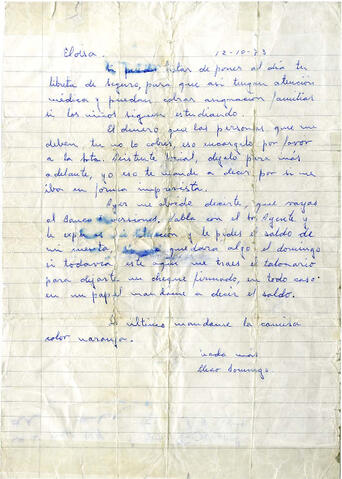 Elorsa. 12-10-73
tratar de poner al día tu
libreta de seguro, para que así tengan atención
médica y puedan cobrar asignación familiar
si los niños siguen estudiando.
El dinero que las personas que me
deben, tu no lo cobres, eso encargalo por favor
a la tota. Asistente Social, dejalo para mas
adelante, yo eso te mande a decir por si me
iba en forma imprevista.
Ayer me olvidé decirte, que vayas
al Banco habla con el Sr Agente y
le y le pides el saldo de
mi cuenta, quedara algo, el domingo
si todavia esté aquí me traes el talonario
para dejarte un cheque firmado, en todo caso
en un papel mandame a decir el saldo.
Lo ultimo mandame la camisa
color naranja.
nada mas
Domingo